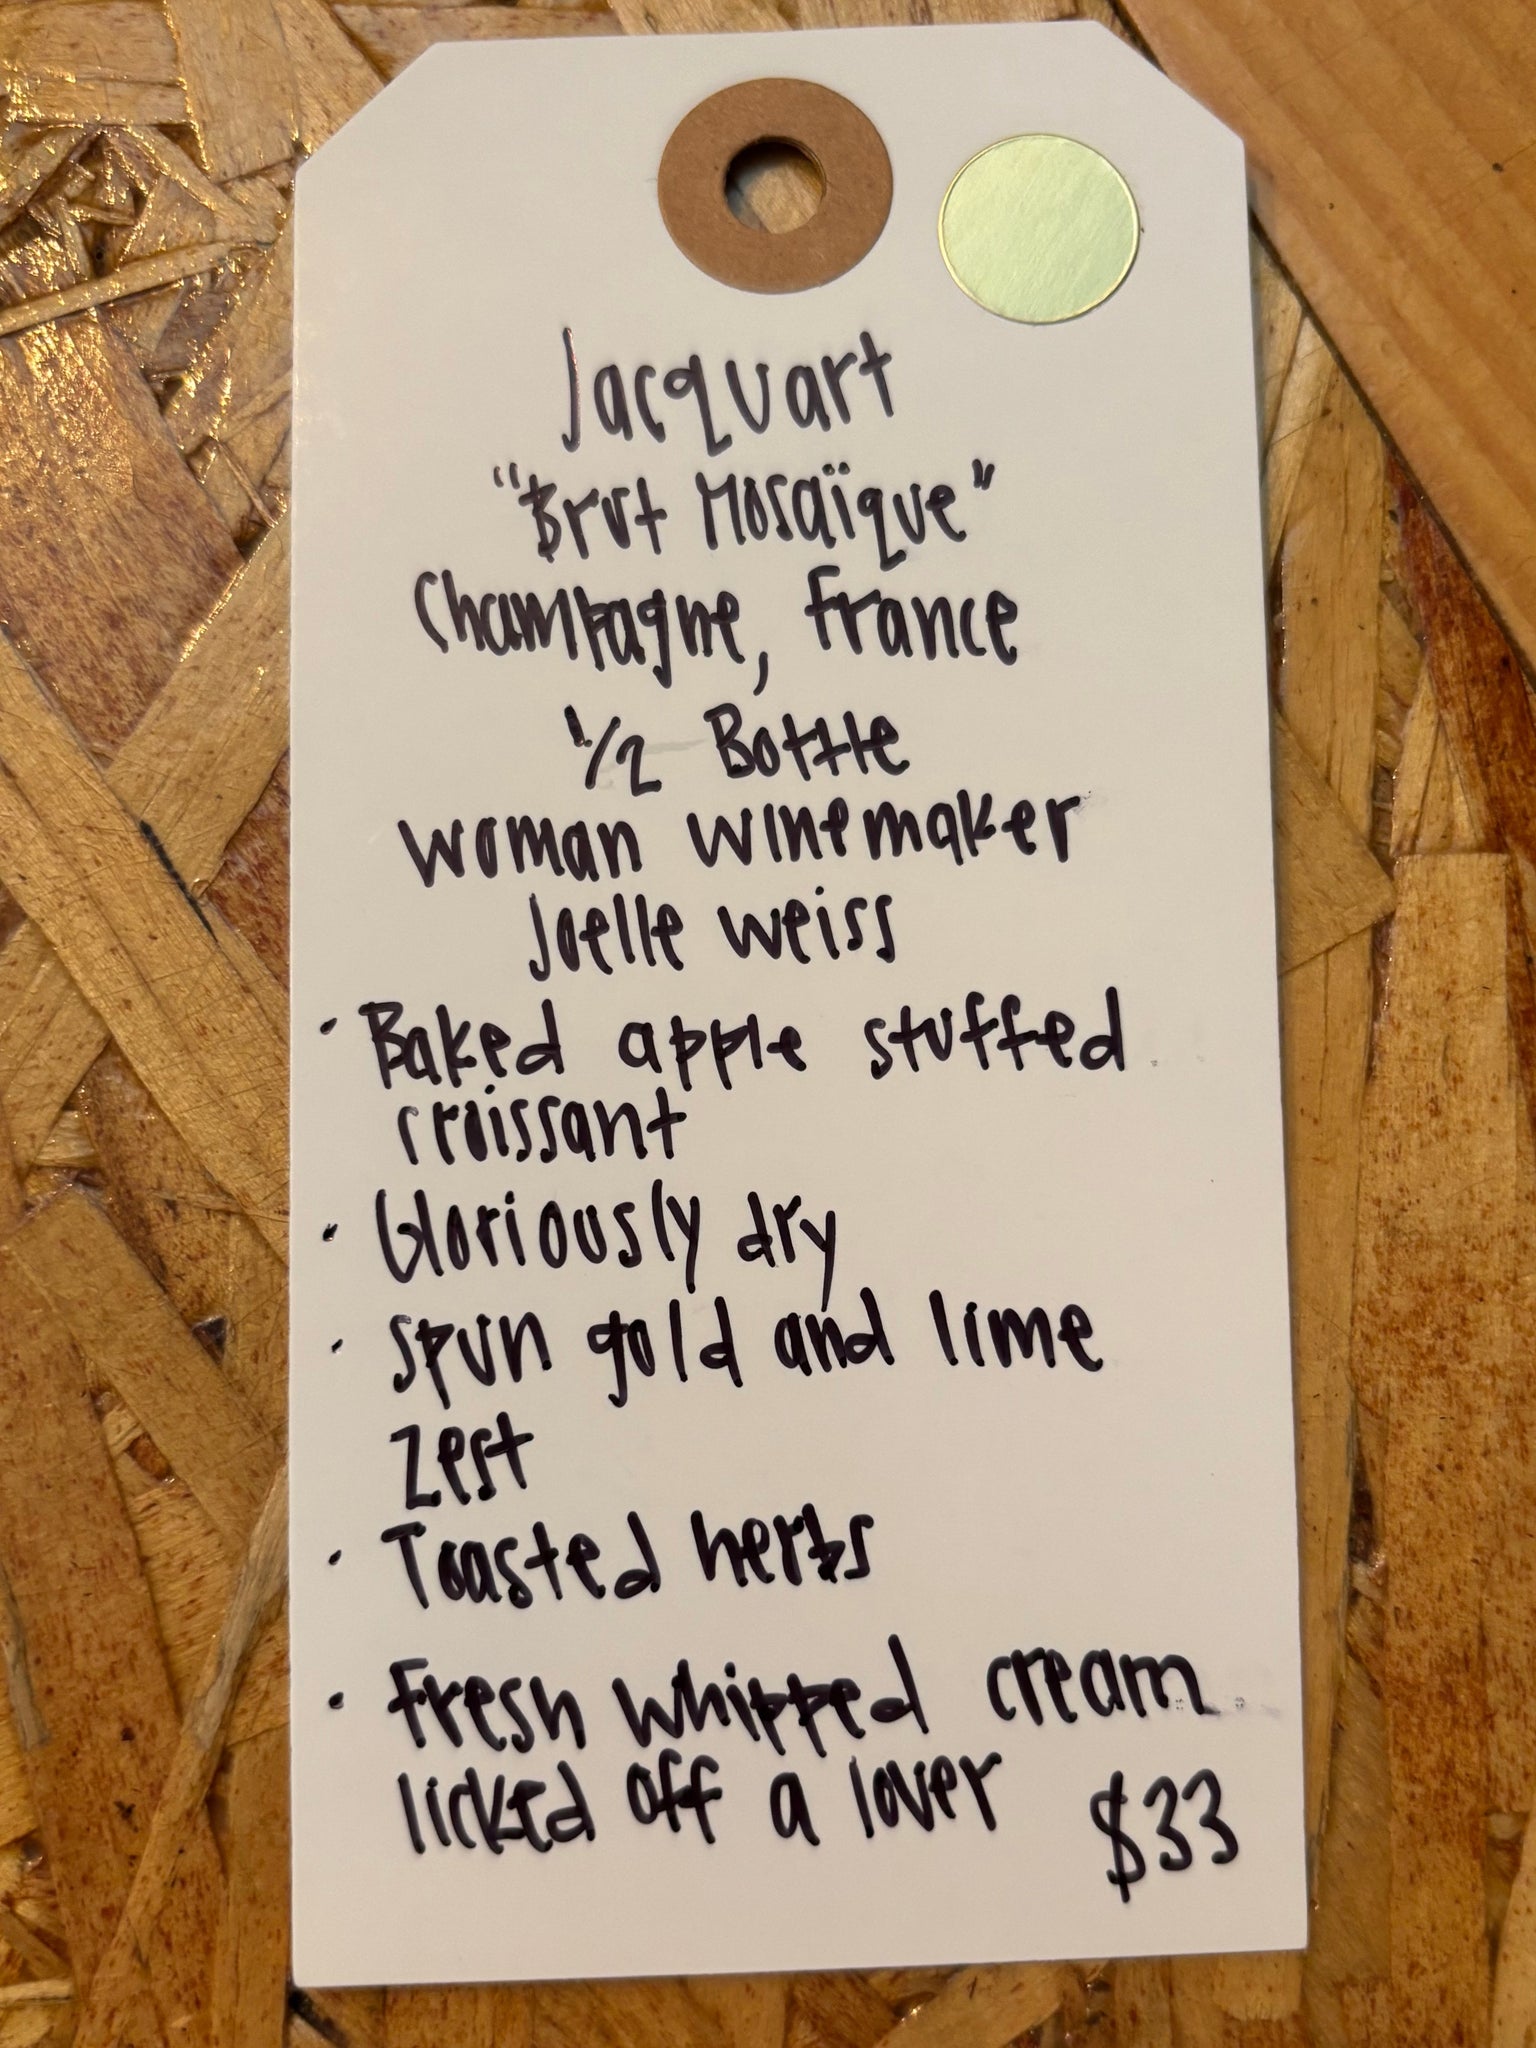 Jacquart
"Brut Mosaïque"
Champagne, France
1/2 Bottle
woman winemaker
Joelle Weiss
· Baked apple stuffed
croissant
· Gloriously dry
· spun gold and lime
zest
· Toasted herbs
· Fresh whipped cream
licked off a lover $33